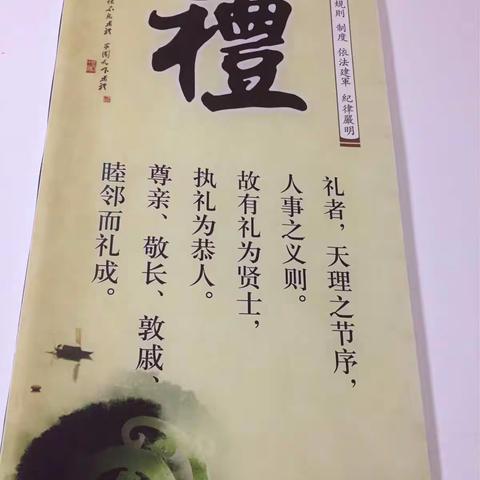 禮
規則 制度 依法建軍 紀律嚴明
礼者，天理之节序，
人事之义则。
故有礼为贤士，
执礼为恭人。
尊亲、敬长、敦戚、
睦邻而礼成。